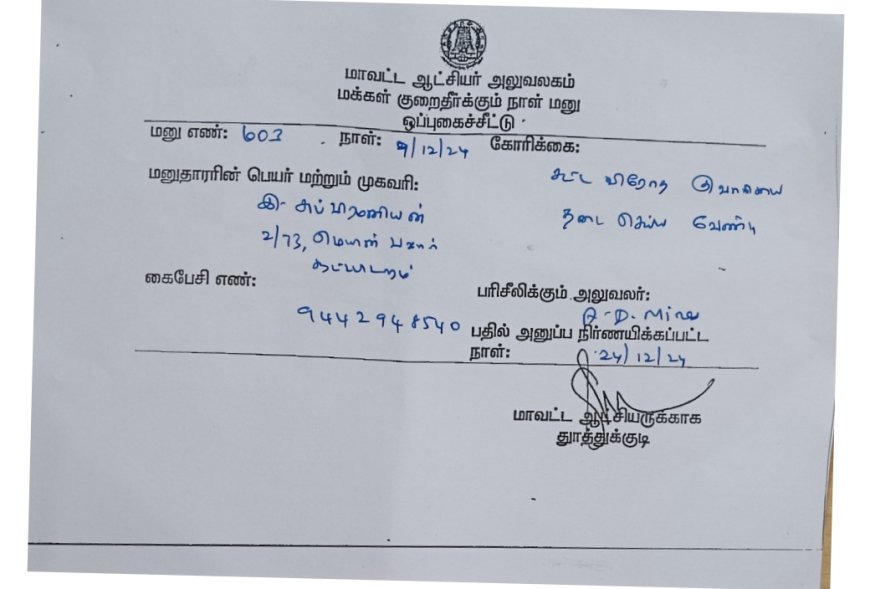 மாவட்ட ஆட்சியர் அலுவலகம்
மக்கள் குறைதீர்க்கும் நாள் மனு
ஒப்புகைச்சீட்டு
மனு எண்: 603 நாள்: 9/12/24 கோரிக்கை:
மனுதாரரின் பெயர் மற்றும் முகவரி:
சட்ட விரோத குவாரியை
தடை செய்ய வேண்டி
இ. சுப்பிரமணியன்
2/73,
கைபேசி எண்:
9442948540
பரிசீலிக்கும் அலுவலர்:
A.D. Mines
பதில் அனுப்ப நிர்ணயிக்கப்பட்ட
நாள்: 24/12/24
மாவட்ட ஆட்சியருக்காக
தூத்துக்குடி